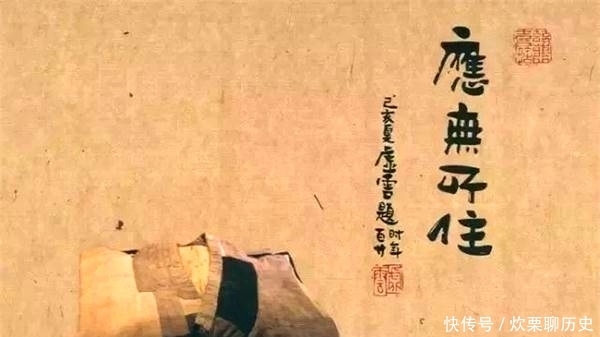 應無所住
己亥夏虛雲題
时年
百廿
快传号 / 炊栗聊历史